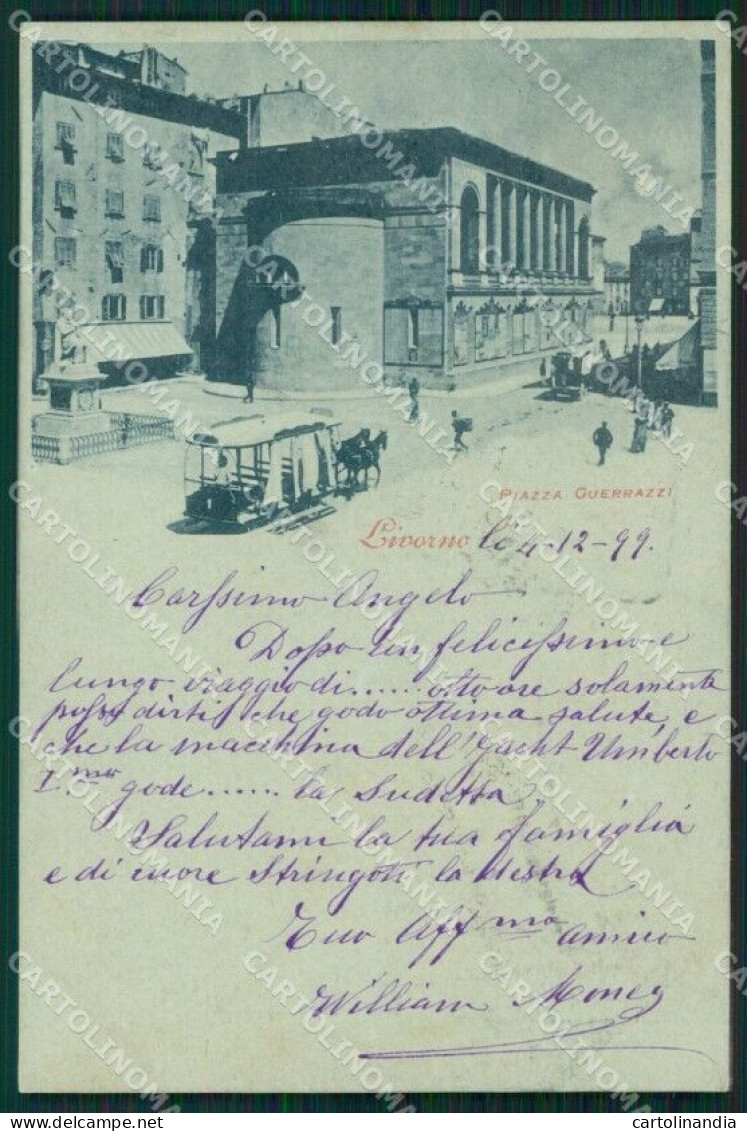 PIAZZA GUERRAZZI
Livorno li 4-12-99.
Carissimo Angelo
Dopo un felicissimo e
lungo viaggio di...... otto ore solamente
posso dirti che godo ottima salute, e
che la macchina dell'Yacht Umberto
I.mo gode...... la sudetta
Salutami la tua famiglia
e di cuore stringoti la destra
Tuo Aff mo amico
William
CARTOLINOMANIA
delcampe.net
cartolinandia